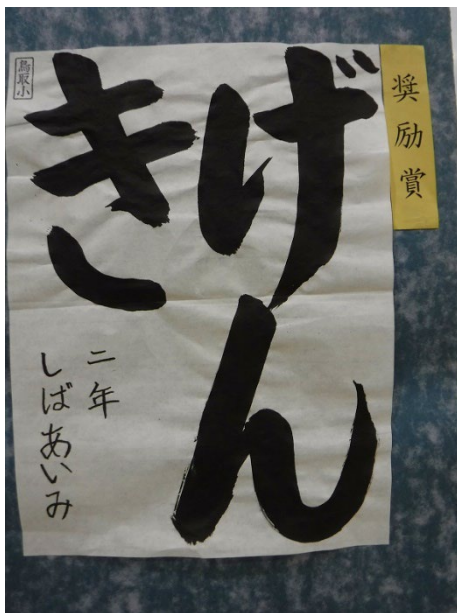 奨励賞
げん
き
二年
しばあいみ
鳥取小